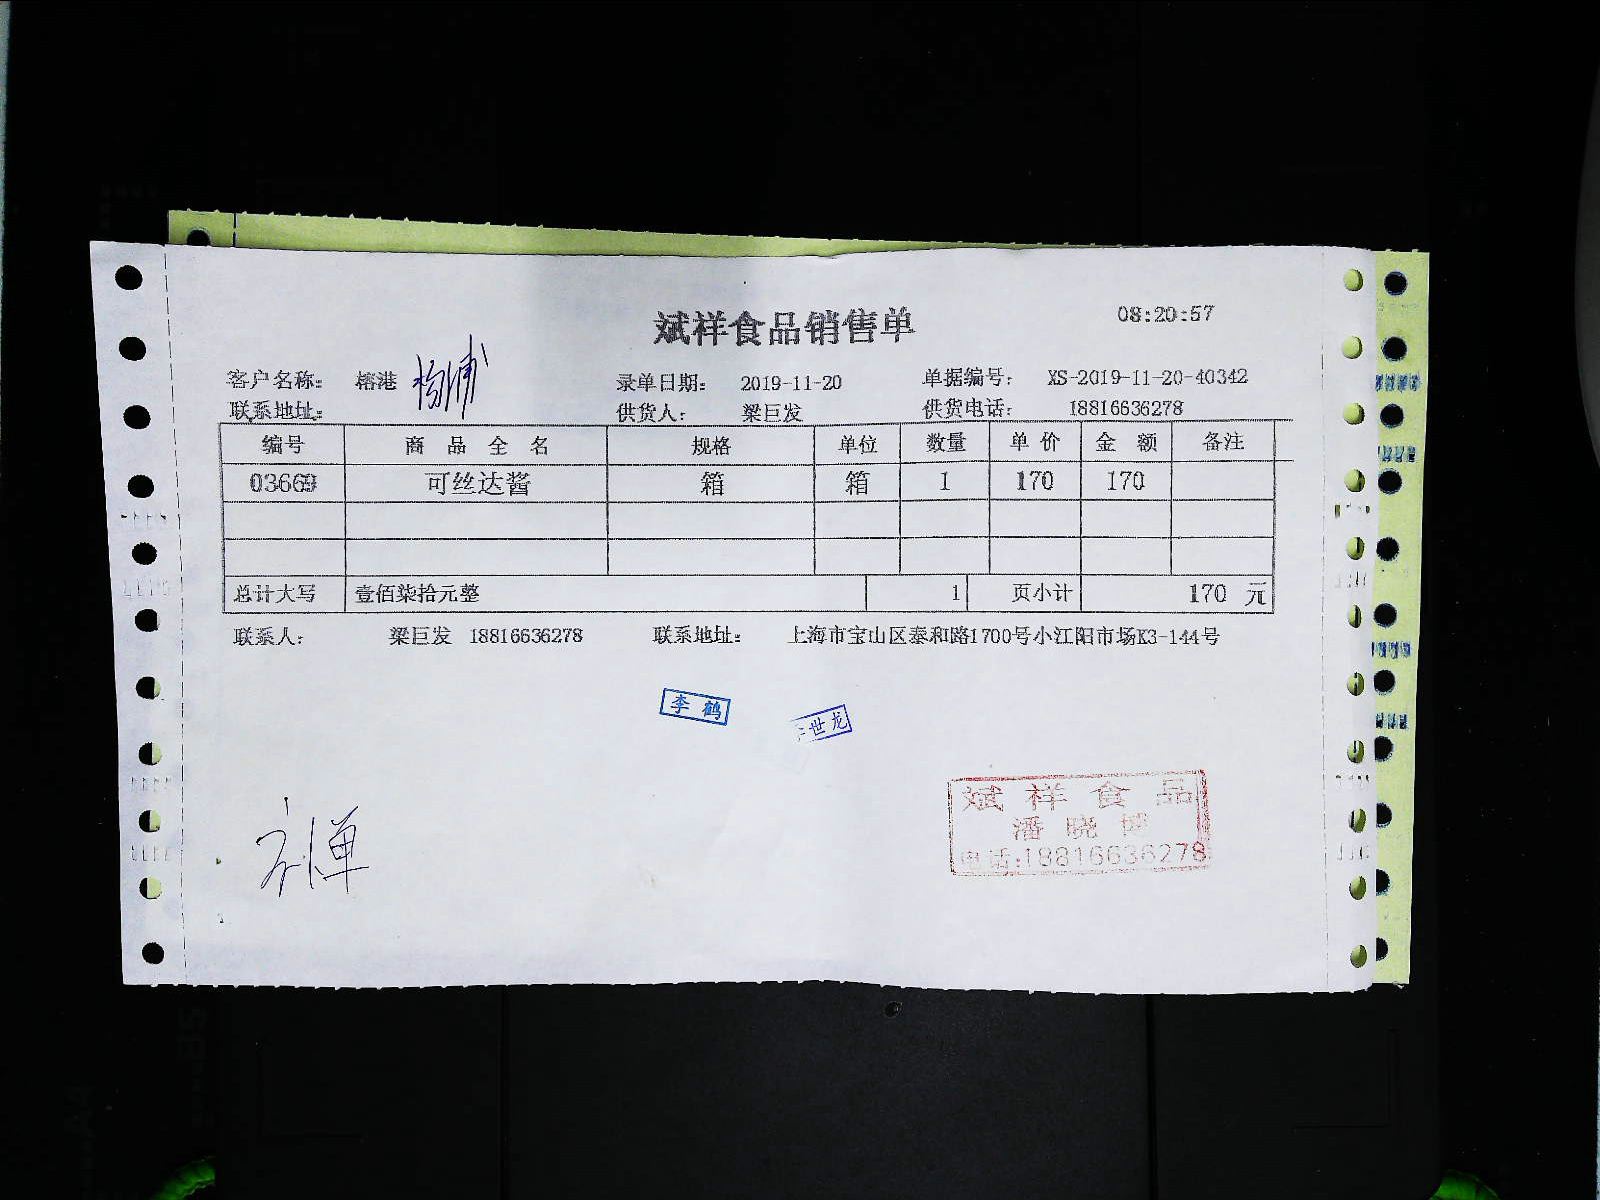 斌祥食品销售单 08:20:57
客户名称: 榕港 杨浦 录单日期: 2019-11-20 单据编号: XS-2019-11-20-40342
联系地址: 供货人: 梁巨发 供货电话: 18816636278
编号 商品全名 规格 单位 数量 单价 金额 备注
03669 可丝达酱 箱 箱 1 170 170
总计大写 壹佰柒拾元整 1 页小计 170 元
联系人: 梁巨发 18816636278 联系地址: 上海市宝山区泰和路1700号小江阳市场K3-144号
李鹤
世龙
斌祥食品
潘晓博
电话:18816636278